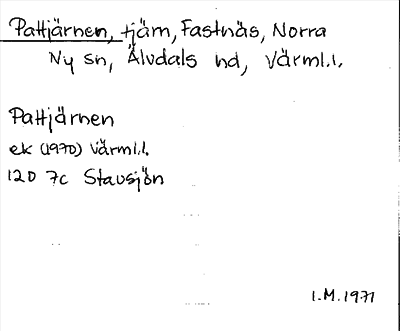 Pattjärnen, tjärn, Fastnäs, Norra
Ny sn, Älvdals hd, Värml.l.
Pattjärnen
ek (1970) Värml.l.
12D 7c Stavsjön
I.M. 1971